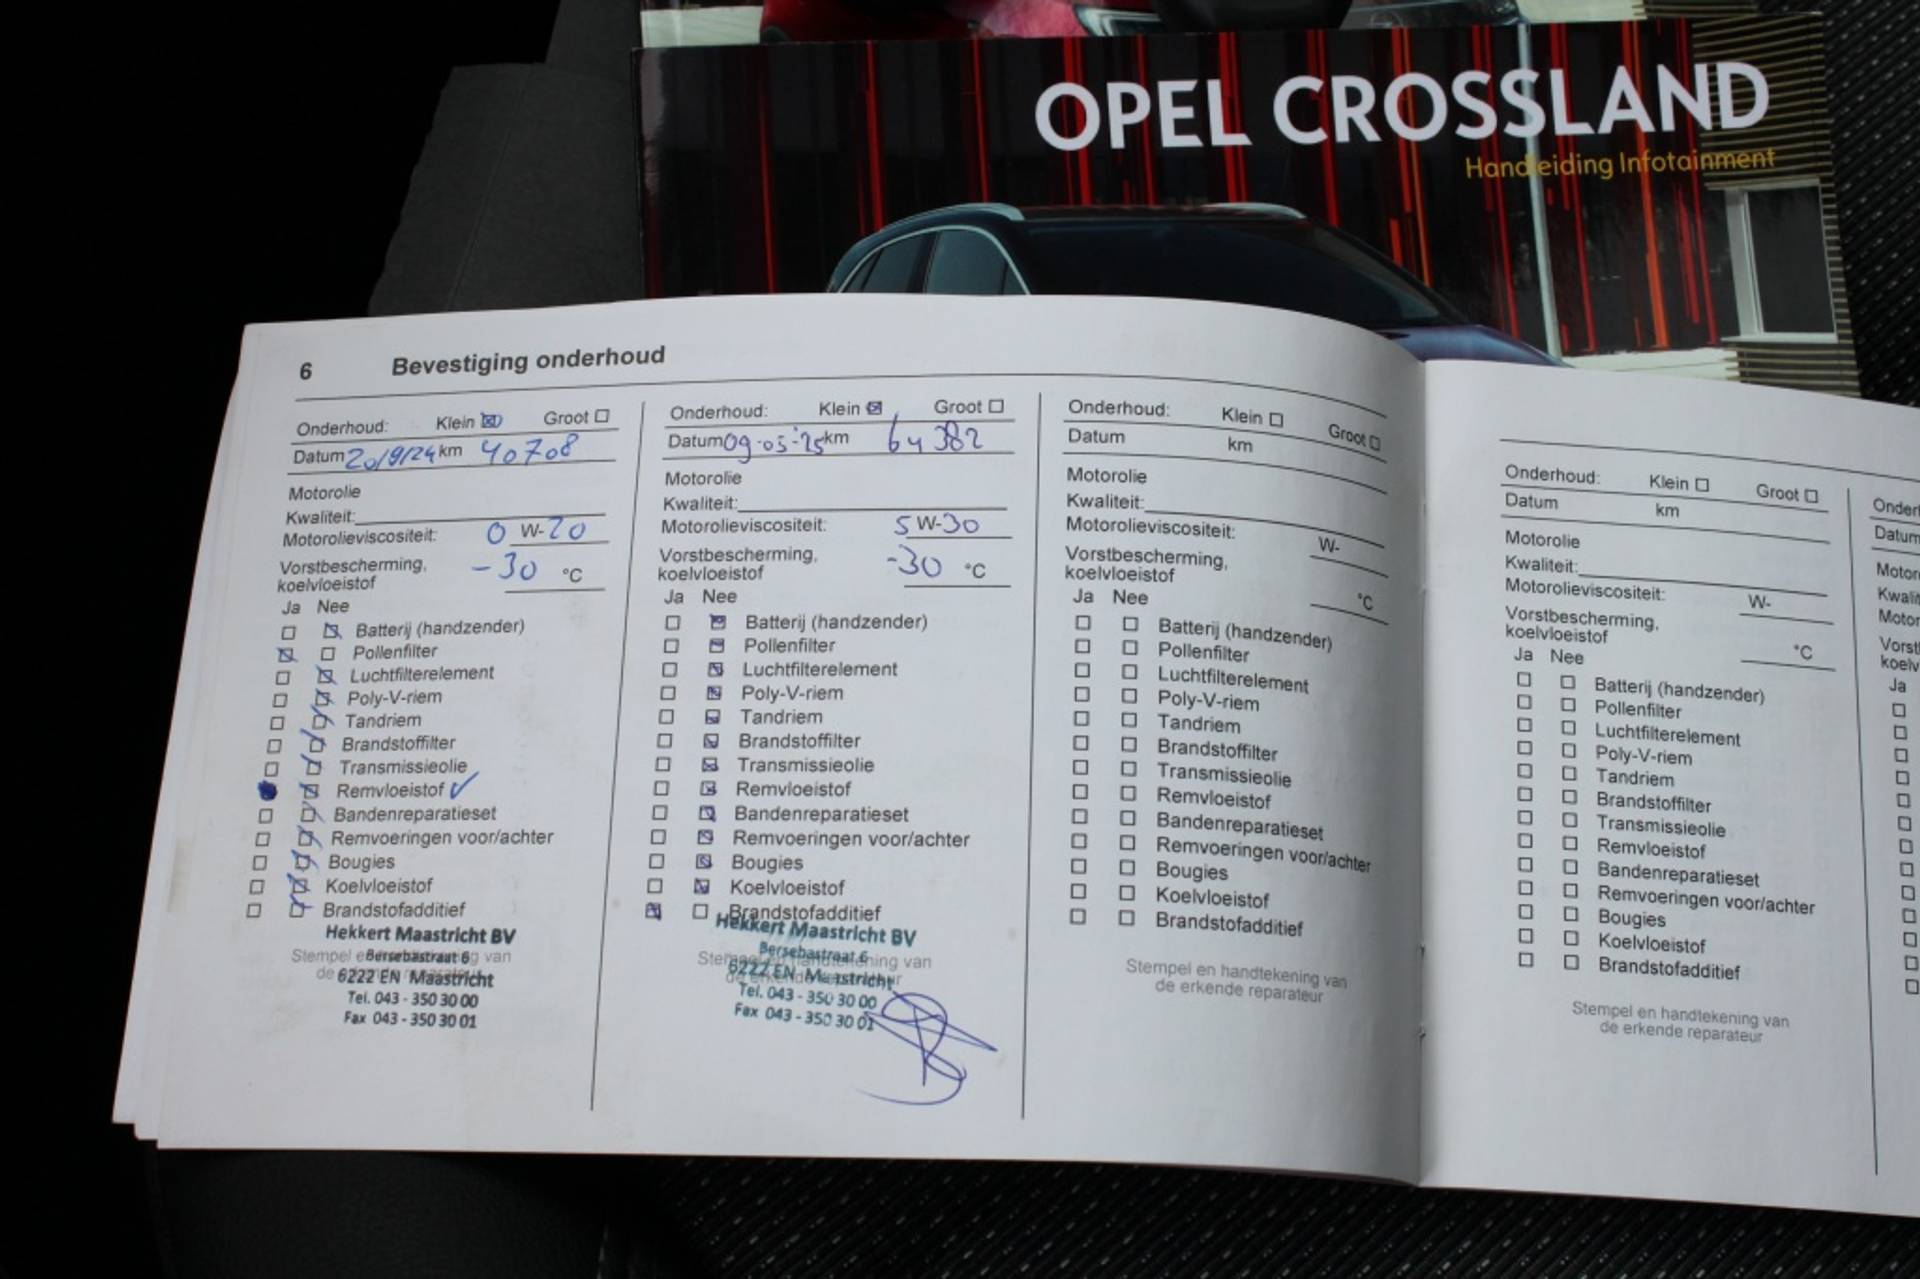 OPEL CROSSLAND
Handleiding Infotainment
6 Bevestiging onderhoud
Onderhoud: Klein Groot
Datum 20/9/24 km 40708
Motorolie
Kwaliteit:
Motorolieviscositeit: 0 W-20
Vorstbescherming, -30 °C
koelvloeistof
Ja Nee
Batterij (handzender)
Pollenfilter
Luchtfilterelement
Poly-V-riem
Tandriem
Brandstoffilter
Transmissieolie
Remvloeistof
Bandenreparatieset
Remvoeringen voor/achter
Bougies
Koelvloeistof
Brandstofadditief
Hekkert Maastricht BV
Stempel en handtekening van
Bersebastraat 6
6222 EN Maastricht
Tel. 043 - 350 30 00
Fax 043 - 350 30 01
Onderhoud: Klein Groot
Datum 09-05-'25 km 64382
Motorolie
Kwaliteit:
Motorolieviscositeit: 5 W-30
Vorstbescherming, -30 °C
koelvloeistof
Ja Nee
Batterij (handzender)
Pollenfilter
Luchtfilterelement
Poly-V-riem
Tandriem
Brandstoffilter
Transmissieolie
Remvloeistof
Bandenreparatieset
Remvoeringen voor/achter
Bougies
Koelvloeistof
Brandstofadditief
Hekkert Maastricht BV
Bersebastraat 6
Stempel en handtekening van
6222 EN Maastricht
Tel. 043 - 350 30 00
Fax 043 - 350 30 01
Onderhoud: Klein Groot
Datum km
Motorolie
Kwaliteit:
Motorolieviscositeit: W-
Vorstbescherming,
koelvloeistof °C
Ja Nee
Batterij (handzender)
Pollenfilter
Luchtfilterelement
Poly-V-riem
Tandriem
Brandstoffilter
Transmissieolie
Remvloeistof
Bandenreparatieset
Remvoeringen voor/achter
Bougies
Koelvloeistof
Brandstofadditief
Stempel en handtekening van
de erkende reparateur
Onderhoud: Klein Groot
Datum km
Motorolie
Kwaliteit:
Motorolieviscositeit: W-
Vorstbescherming,
koelvloeistof °C
Ja Nee
Batterij (handzender)
Pollenfilter
Luchtfilterelement
Poly-V-riem
Tandriem
Brandstoffilter
Transmissieolie
Remvloeistof
Bandenreparatieset
Remvoeringen voor/achter
Bougies
Koelvloeistof
Brandstofadditief
Stempel en handtekening van
de erkende reparateur
Datum
Ja